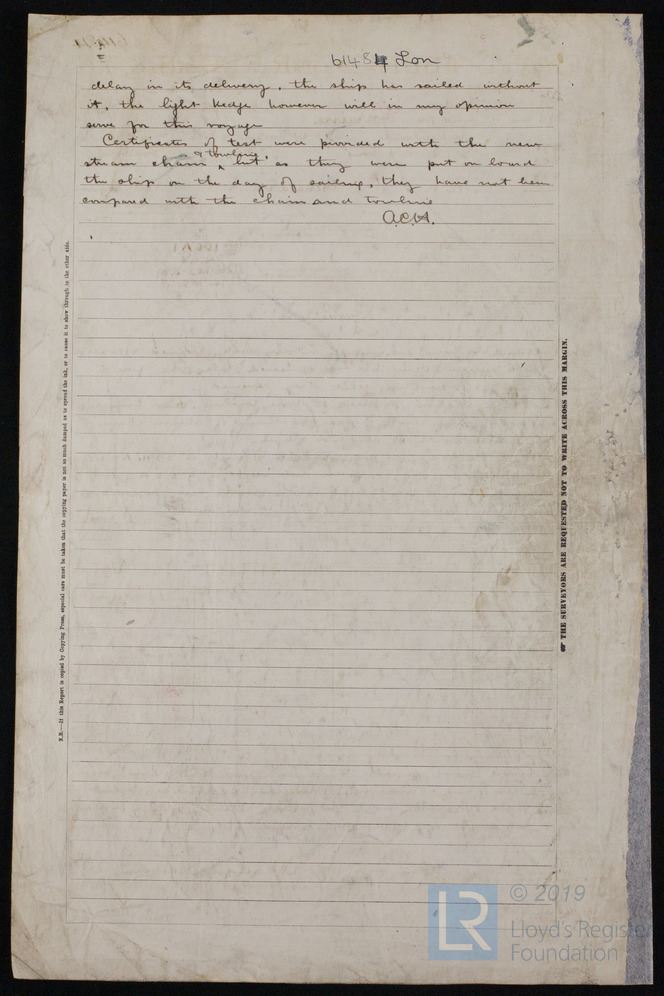 61484 Lon
delay in its delivery, the ship has sailed without
it, the light kedge however will in my opinion
serve for this voyage
Certificates of test were provided with the new
stream chain & towline, but as they were put on board
the ship on the day of sailing, they have not been
compared with the chain and towline
A.C.H.
N.B.—If this Report is copied by Copying Press, especial care must be taken that the copying paper is not so much damped as to spread the ink, or to cause it to show through to the other side.
☞ THE SURVEYORS ARE REQUESTED NOT TO WRITE ACROSS THIS MARGIN.
LR
© 2019
Lloyd's Register
Foundation